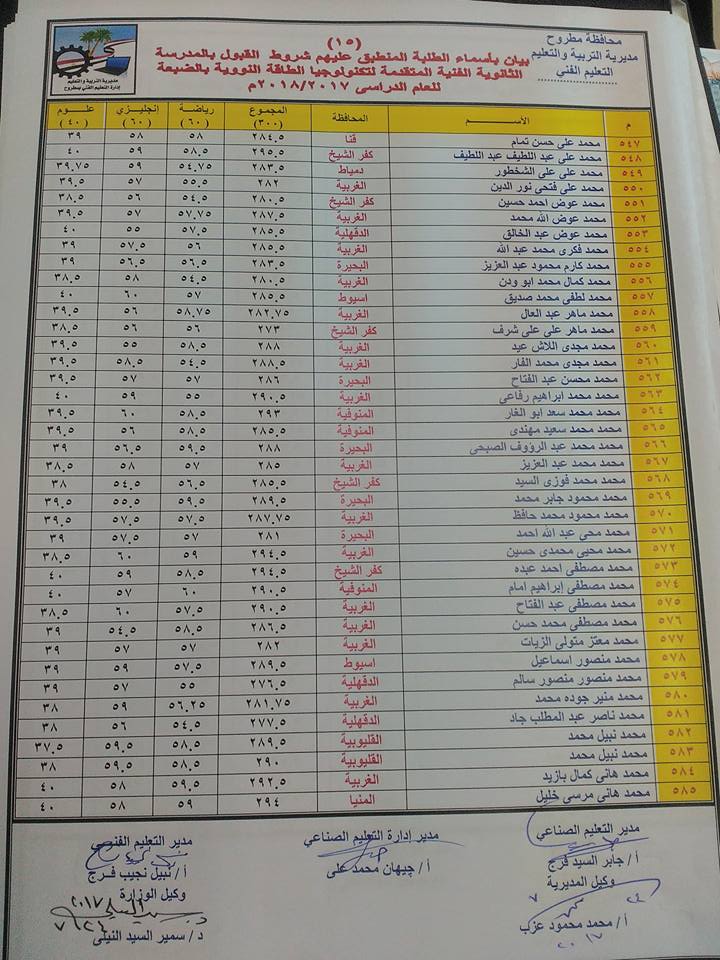 محافظة مطروح
مديرية التربية والتعليم
التعليم الفني
(١٥)
بيان بأسماء الطلبة المنطبق عليهم شروط القبول بالمدرسة
الثانوية الفنية المتقدمة لتكنولوجيا الطاقة النووية بالضبعة
للعام الدراسى ٢٠١٨/٢٠١٧م
مديرية التربية والتعليم
إدارة التعليم الفني بمطروح
م الأســـم المحافظة المجموع (٣٠٠) رياضة (٦٠) إنجليزى (٦٠) علوم (٤٠)
٥٤٧ محمد على حسن تمام قنا ٢٨٤.٥ ٥٨ ٥٨ ٣٩
٥٤٨ محمد على عبد اللطيف عبد اللطيف كفر الشيخ ٢٩٥.٥ ٥٨.٥ ٥٩ ٤٠
٥٤٩ محمد على على الشخطور دمياط ٢٨٣.٥ ٥٤.٧٥ ٥٩ ٣٩.٧٥
٥٥٠ محمد على فتحى نور الدين الغربية ٢٨٢ ٥٥.٥ ٥٧ ٣٩.٥
٥٥١ محمد عوض احمد حسين كفر الشيخ ٢٨٠.٥ ٥٤.٥ ٥٦ ٣٨.٥
٥٥٢ محمد عوض الله محمد الغربية ٢٨٧.٥ ٥٧.٧٥ ٥٧ ٣٩.٥
٥٥٣ محمد عوض عبد الخالق الدقهلية ٢٨٥.٥ ٥٧.٥ ٥٥ ٤٠
٥٥٤ محمد فكرى محمد عبد الله الغربية ٢٨٥.٥ ٥٦ ٥٧.٥ ٣٩
٥٥٥ محمد كارم محمود عبد العزيز البحيرة ٢٨٣.٥ ٥٦.٥ ٥٦.٥ ٣٩
٥٥٦ محمد كمال محمد ابو ودن الغربية ٢٨٠.٥ ٥٤.٥ ٥٨ ٣٨.٥
٥٥٧ محمد لطفى محمد صديق اسيوط ٢٨٥.٥ ٥٧ ٦٠ ٤٠
٥٥٨ محمد ماهر عبد العال الغربية ٢٨٢.٧٥ ٥٨.٧٥ ٥٦ ٣٩.٥
٥٥٩ محمد ماهر على على شرف كفر الشيخ ٢٧٣ ٥٦ ٥٦ ٣٨.٥
٥٦٠ محمد مجدى اللاش عيد الغربية ٢٨٨ ٥٨.٥ ٥٥ ٣٩.٥
٥٦١ محمد مجدى محمد الفار الغربية ٢٨٨.٥ ٥٤.٥ ٥٨.٥ ٣٩.٥
٥٦٢ محمد محسن عبد الفتاح البحيرة ٢٨٦ ٥٧ ٥٧ ٣٩.٥
٥٦٣ محمد محمد ابراهيم رفاعى الغربية ٢٩٠.٥ ٥٥ ٥٩ ٤٠
٥٦٤ محمد محمد سعد ابو الغار المنوفية ٢٩٣ ٥٨.٥ ٦٠ ٣٩.٥
٥٦٥ محمد محمد سعيد مهندى المنوفية ٢٨٥.٥ ٥٨.٥ ٥٦ ٣٩.٥
٥٦٦ محمد محمد عبد الرؤوف الصبحى البحيرة ٢٨٨ ٥٩.٥ ٥٦.٥ ٣٩
٥٦٧ محمد محمد عبد العزيز الغربية ٢٨٥ ٥٧ ٥٨ ٣٨.٥
٥٦٨ محمد محمد فوزى السيد كفر الشيخ ٢٨٥.٥ ٥٦.٥ ٥٤.٥ ٣٨
٥٦٩ محمد محمود جابر محمد البحيرة ٢٨٩.٥ ٥٩.٥ ٥٥.٥ ٣٩.٥
٥٧٠ محمد محمود محمد حافظ الغربية ٢٨٧.٧٥ ٥٧.٥ ٥٧.٥ ٣٩.٥
٥٧١ محمد محى عبد الله احمد البحيرة ٢٨١ ٥٧ ٥٧.٥ ٣٩
٥٧٢ محمد محيى محمدى حسين الغربية ٢٩٤.٥ ٥٩ ٦٠ ٣٨.٥
٥٧٣ محمد مصطفى احمد عبده كفر الشيخ ٢٩٤.٥ ٥٨.٥ ٥٩ ٤٠
٥٧٤ محمد مصطفى إبراهيم امام المنوفية ٢٩٠.٥ ٦٠ ٥٧ ٤٠
٥٧٥ محمد مصطفى عبد الفتاح الغربية ٢٩٠.٥ ٥٧.٥ ٦٠ ٣٨.٥
٥٧٦ محمد مصطفى محمد حسن الغربية ٢٨٦.٥ ٥٨.٥ ٥٤.٥ ٣٩
٥٧٧ محمد معتز متولى الزيات الغربية ٢٨٢ ٥٧ ٥٧ ٣٩
٥٧٨ محمد منصور اسماعيل اسيوط ٢٨٩.٥ ٥٧.٥ ٥٩ ٣٩
٥٧٩ محمد منصور منصور سالم الدقهلية ٢٧٦.٥ ٥٥ ٥٧ ٣٩
٥٨٠ محمد منير جوده محمد الغربية ٢٨١.٧٥ ٥٦.٢٥ ٥٩ ٣٨
٥٨١ محمد ناصر عبد المطلب جاد الدقهلية ٢٧٧.٥ ٥٤.٥ ٥٦ ٣٨
٥٨٢ محمد نبيل محمد القليوبية ٢٨٩.٥ ٥٨.٥ ٥٩.٥ ٣٧.٥
٥٨٣ محمد نبيل محمد القليوبية ٢٩٠ ٥٨.٥ ٥٩.٥ ٣٨
٥٨٤ محمد هانى كمال بازيد الغربية ٢٩٢.٥ ٥٩.٥ ٥٨ ٤٠
٥٨٥ محمد هانى مرسى خليل المنيا ٢٩٤ ٥٩ ٥٨ ٤٠
مدير التعليم الصناعي
أ / جابر السيد فرج
وكيل المديرية
٧ ٢٤
أ / محمد محمود عزب
٢٠١٧
مدير إدارة التعليم الصناعي
أ / جيهان محمد على
مدير التعليم الفنى
أ / نبيل نجيب فرج
وكيل الوزارة
٢٠١٧
٧/٢٤
د / سمير السيد النيلى